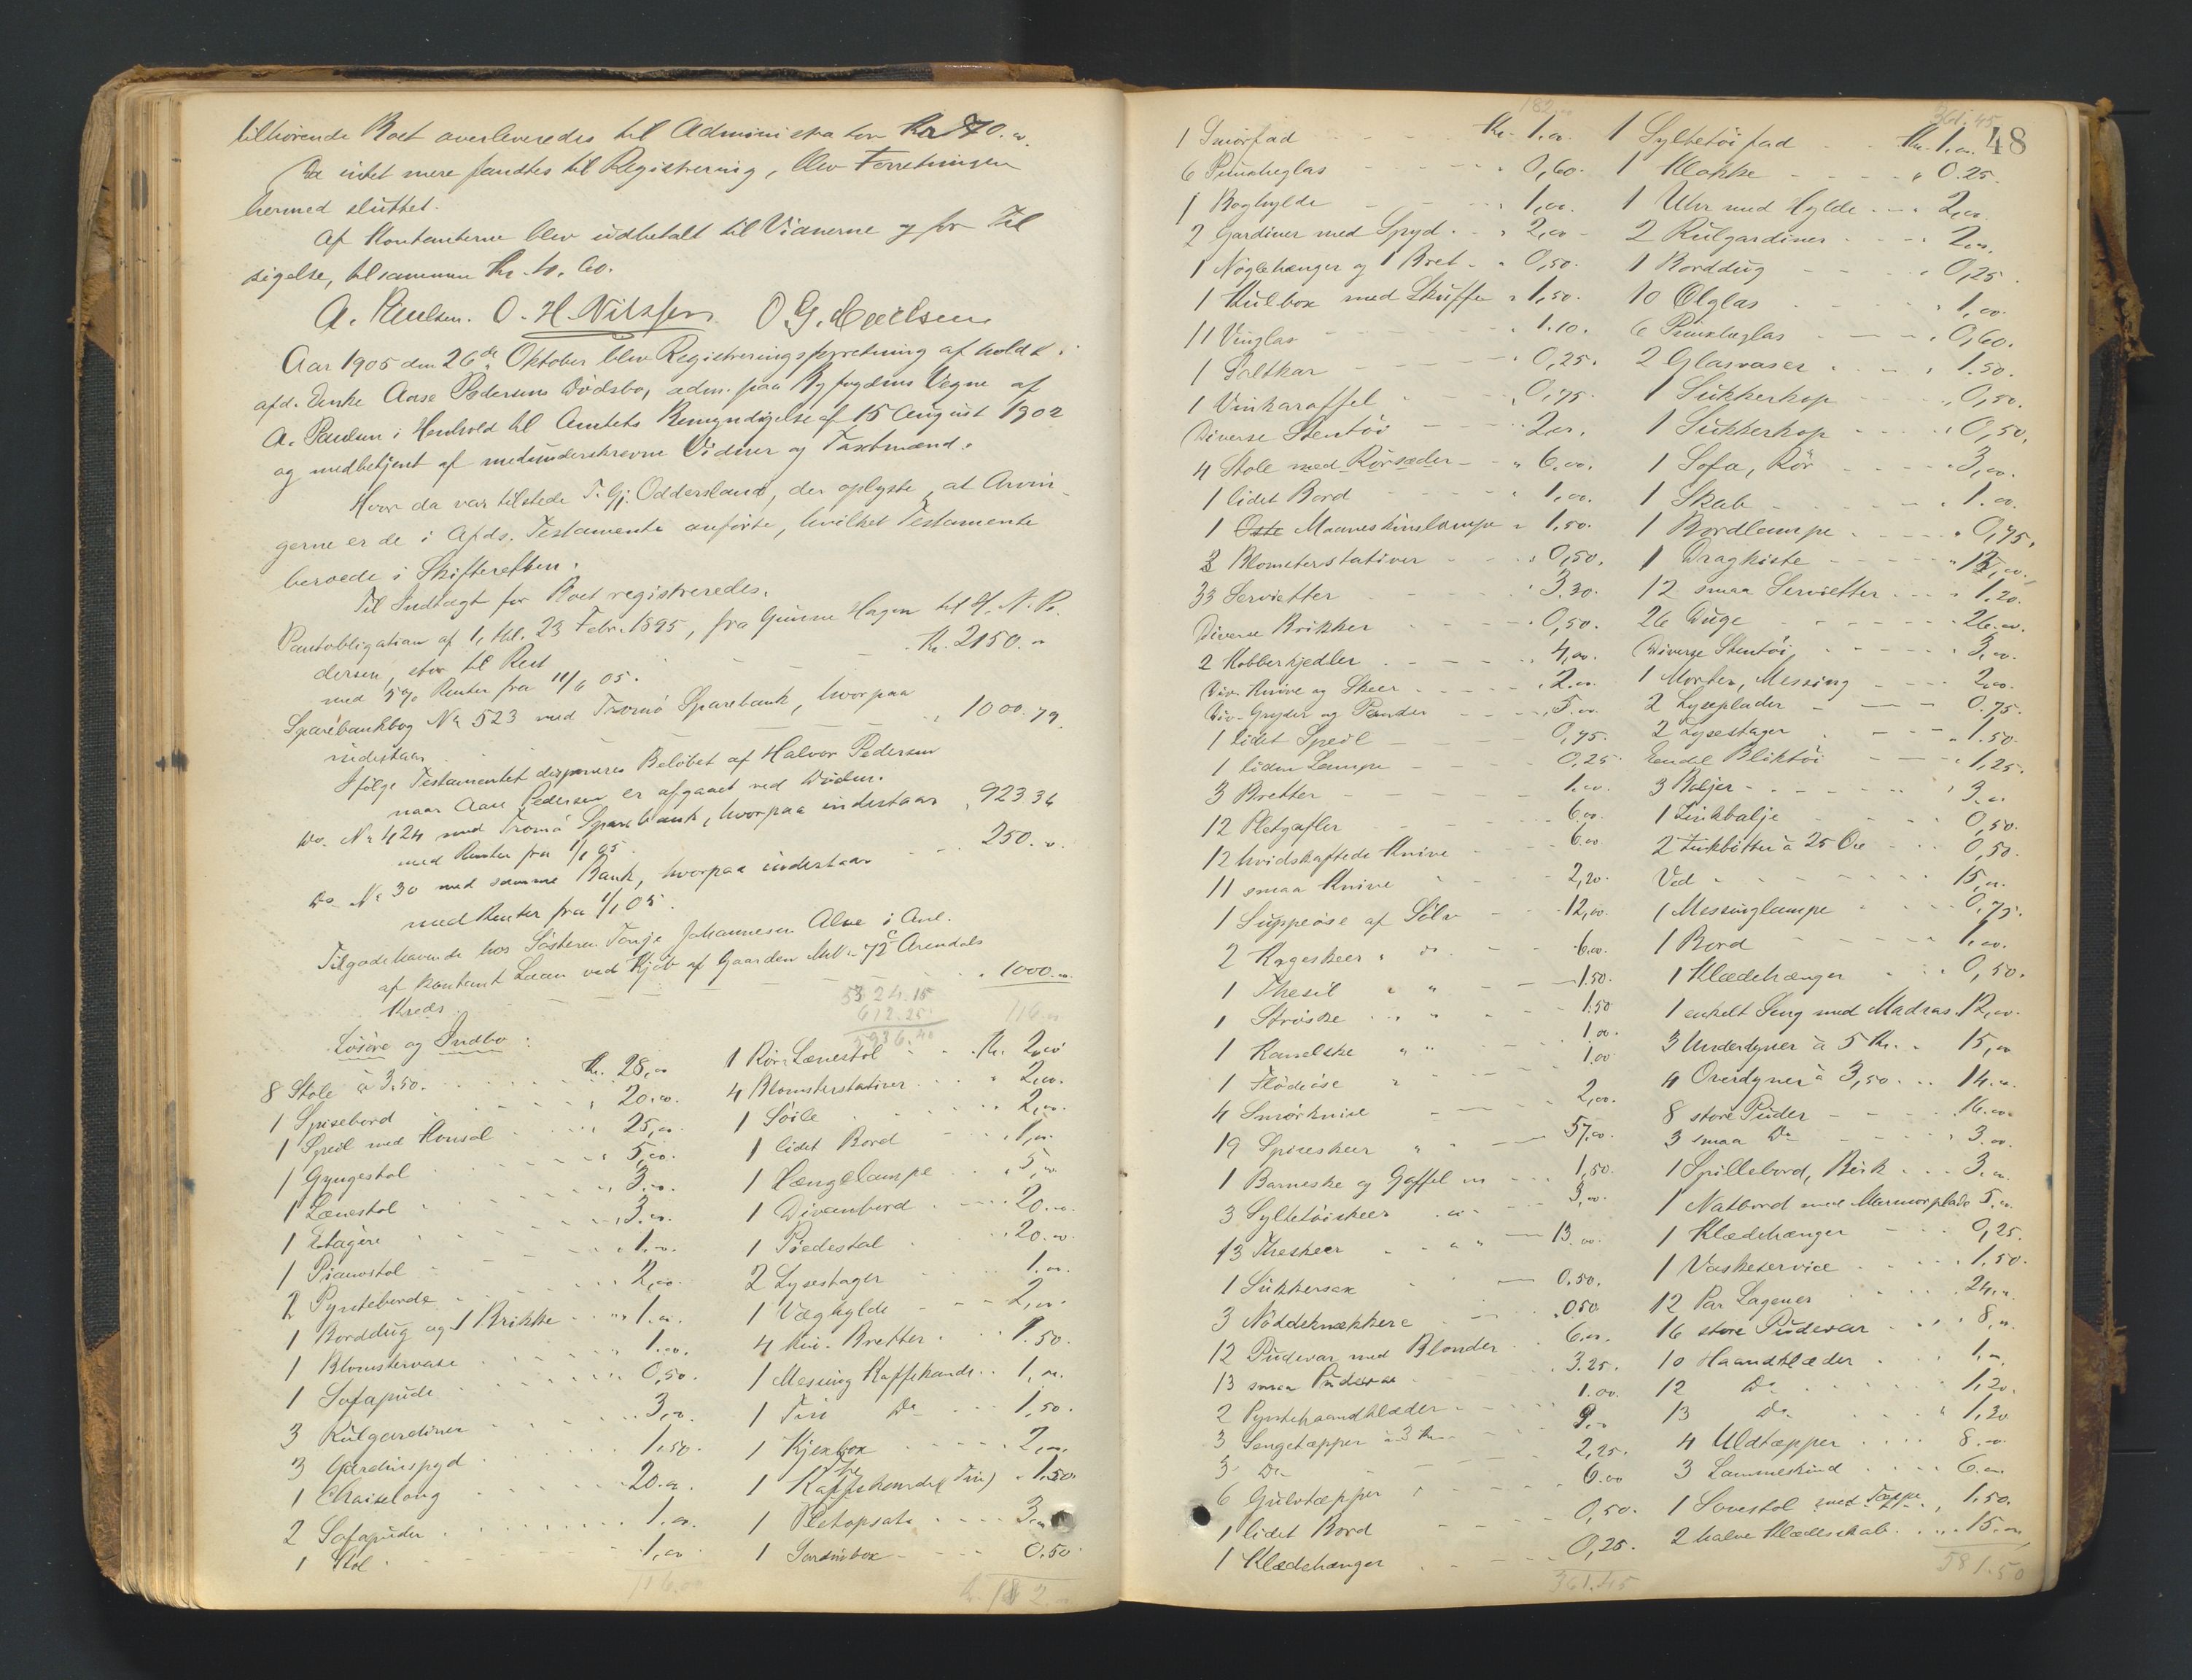 tilhørende Boet overleveredes til Administrator Kr 70.00
Da intet mere fandtes til Registrering, blev Forretningen
hermed sluttet.
Af Kontanterne blev udbetalt til Vidnerne og for Til
sigelse, tilsammen Kr.
A. Paulsen. O. H. Nilssen O. G.
Aar 1905 den 26de Oktober blev Registreringsforretning afholdt i
afd. Enke Aase Pedersens Dødsbo, adm. paa Byfogdens Vegne af
A. Paulsen i Henhold til Amtets Bemyndigelse af 15 August 1902
og medbetjent af medunderskrevne Vidner og Taxtmænd.
Hvor da var tilstede T. Gj. Oddersland, der oplyste, at Arvin-
gerne er de i Afds. Testamente anførte, hvilket Testamente
beroede i Skifteretten.
Til Indtægt for Boet registreredes.
Pantobligation af 1, tbl. 23 Febr. 1895, fra Gunne Hagen til H. N. Pe-
dersen, stor til Rest Kr. 2150.00
med 5% Renter fra 11/6 05.
Sparebankbog No 523 med Tromø Sparebank, hvorpaa
indestaar 1000.79
Ifølge Testamentet disponeres Beløbet af Halvor Pedersen
naar Aase Pedersen er afgaaet ved Døden.
Do. No 424 med Tromø Sparebank, hvorpaa indestaar 923 36
med Renter fra 1/1 05.
Do No 30 med samme Bank, hvorpaa indestaar 250.00
med Renter fra 1/1 05.
Tilgodehavende hos Søsteren Tonje Johannesen Alve i Anl.
af kontant Laan ved Kjøb af Gaarden MNo 72c Arendals
Kreds 1000.00
5324.15
612.25
5936.40
Løsøre og Indbo:
8 Stole à 3.50. Kr. 28,00
1 Spisebord 20.00.
1 Speil med Konsol 25,00.
1 Gyngestol 5,00.
1 Lænestol 3.00.
1 Etagere 3.00.
1 Pianostol 1.00.
2 Pynteborde 2,00.
1 Borddug og 1 Brikke 1.00.
1 Blomstervase 1.00.
1 Sofapude 0,50.
3 Rulgardiner 3,00.
3 Gardinspyd 1.50.
1 Chaiselong 20.00.
2 Sofapuder 1.00.
1 Stol 1,00
116.00
1 Rør-Lænestol Kr. 2,00
4 Blomsterstativer 2,00.
1 Søile 2,00.
1 lidet Bord 1,00.
1 Hængelampe 5,00.
1 Divanbord 20.00.
1 Piedestal 20.00.
2 Lysestager 1.00.
1 Væghylde 2,00.
4 Bretter 1.50.
1 Messing Kaffekande 1,00.
1 Tin Do 1,50.
1 Kjexbox 2,00.
1 Kaffekande (Tin) 1.50.
1 Pletopsats 3,00
1 Sardinbox 0.50.
Kr. 182.00
182.00
1 Smørfad Kr. 1.00.
6 Punscheglas 0,60.
1 Boghylde 1,00.
2 Gardiner med Spyd 2,00
1 Nøglehænger og 1 Bret 0,50.
1 Kulbox med Skuffe 1,50.
11 Vinglas 1.10.
1 Saltkar 0,25.
1 Vinkaraffel 0,75.
Diverse Stentøi 2,00.
4 Stole med Rørsæder 6.00.
1 lidet Bord 1,00.
1 Maaneskinslampe 1,50.
3 Blomsterstativer 0,50.
33 Servietter 3.30.
Diverse Brikker 0,50.
2 Kobberkjedler 4,00.
Div. Knive og Skeer 2.00.
Div. Gryder og Pander 5.00.
1 lidet Speil 0,75.
1 liden Lampe 0,25
3 Bretter 1.00.
12 Pletgafler 6.00.
12 hvidskaftede Knive 6.00
11 smaa Knive 2,20.
1 Suppeøse af Sølv 12,00.
2 Kageskeer " do. 6.00.
1 Thesil " " 1.50.
1 Strøske " " 1.50
1 Kanelske " " 1.00.
1 Flødeøse " 1.00
4 Smørknive 2,00.
19 Spiseskeer " " 57,00.
1 Barneske og Gaffel 1,50.
3 Syltetøiskeer 3,00.
13 Theskeer " " 13.00.
1 Sukkersax 0.50.
3 Nøddeknækkere 0.50
12 Pudevar med Blonder 6.00.
13 smaa Pudevar 3.25.
2 Pyntehaandklæder 1.00.
3 Sengetæpper à 3 Kr. 9.00
3 Do 2,25.
6 Gulvtæpper 6.00
1 lidet Bord 0,50.
1 Klædehænger 0,25.
361.45
361.45
48
1 Syltetøifad Kr. 1.00.
1 Klokke 0.25.
1 Uhr med Hylde 2,00.
2 Rulgardiner 2,00.
1 Borddug 0,25.
10 Ølglas 1,00.
6 Punscheglas 0,60.
2 Glasvaser 1.50.
1 Sukkerkop 0,50.
1 Sukkerkop 0,50.
1 Sofa, Rør 3,00.
1 Skab 1.00.
1 Bordlampe 0,75.
1 Dragkiste
12 smaa Servietter 1.20.
26 Duge 26.00.
Diverse Stentøi 3,00.
1 Morter, Messing 2,00.
2 Lyseplader 0.75.
2 Lysestager 1.50.
Endel Bliktøi 1,25.
3 Baljer 3.00
1 Zinkbalje 0,50.
2 Zinkbøtter à 25 Øre 0,50.
Ved 15,00.
1 Messinglampe 0,75.
1 Bord 1.00.
1 Klædehænger 0,50.
1 enkelt Seng med Madras 12,00.
3 Underdyner à 5 Kr. 15,00
4 Overdyner à 3,50 14.00.
8 store Puder 16.00
3 smaa Do 3.00.
1 Spillebord, Birk 3.00.
1 Natbord med Marmorplade 5.00.
1 Klædehænger 0,25.
1 Vaskeservice 1.50.
12 Par Lagener 24,00.
16 store Pudevar 8,00.
10 Haandklæder 1,00.
12 Do 1,20.
13 Do 1,30
4 Uldtæpper 8.00.
3 Lammeskind 6.00.
1 Sovestol med Tæppe 1,50.
2 halve Klædeskab 15.00
581.50